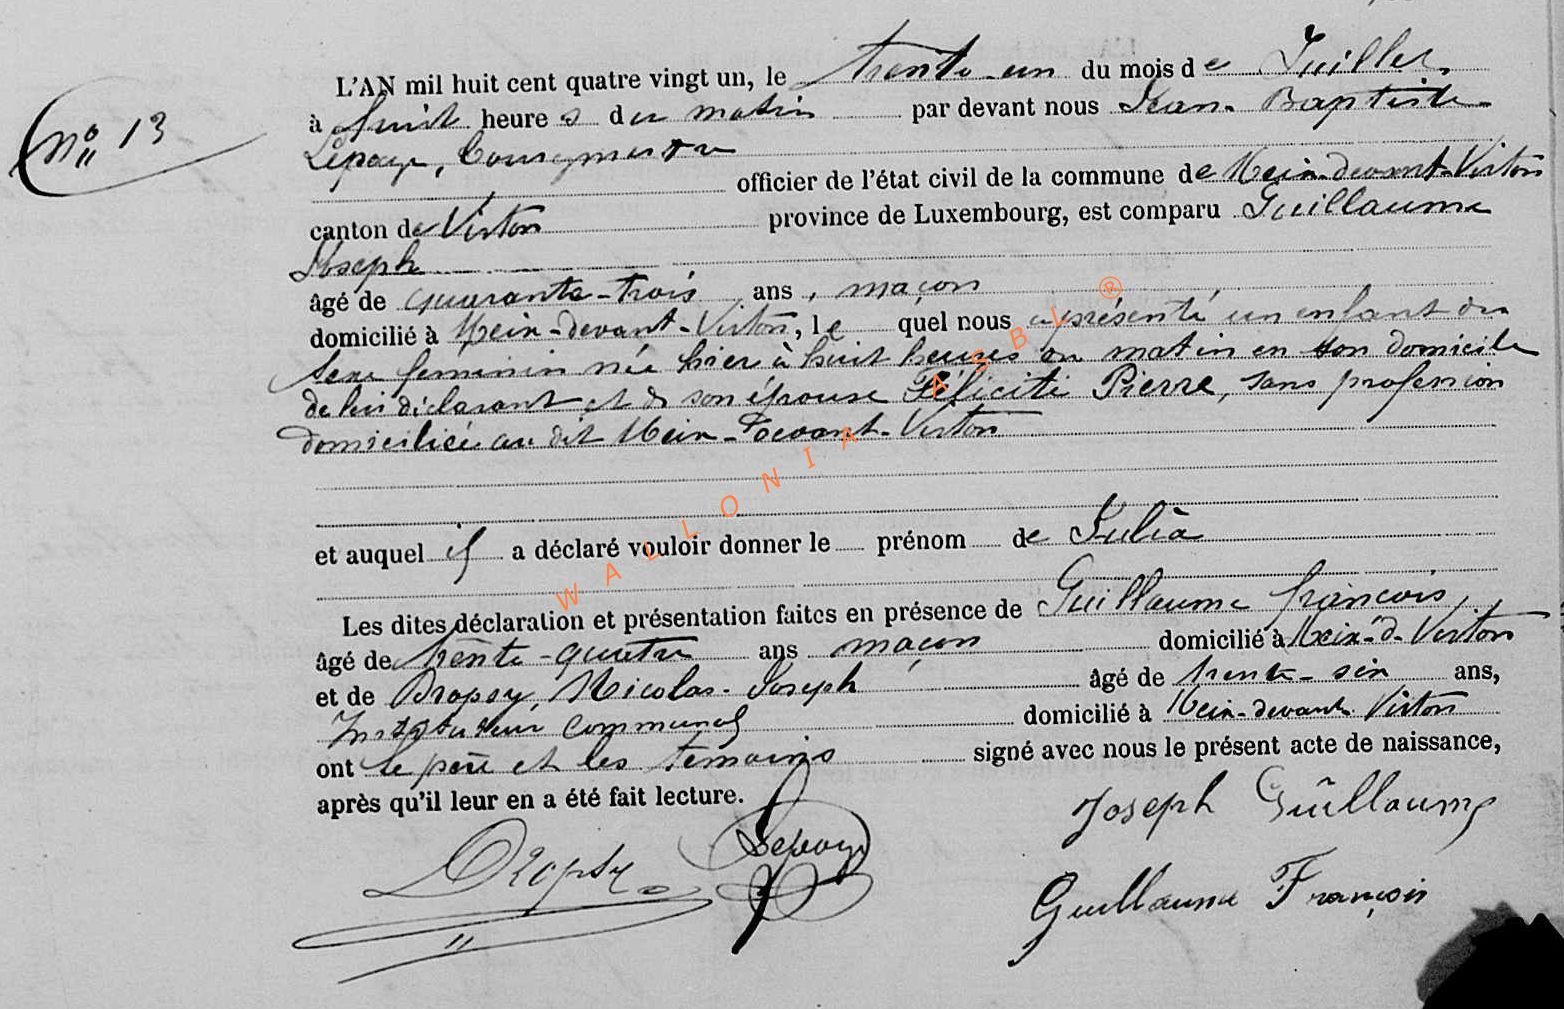 N° 13
L'AN mil huit cent quatre vingt un, le trente-un du mois de Juillet,
à huit heures du matin par devant nous Jean-Baptiste
Lepage, bourgmestre
officier de l'état civil de la commune de Meix-devant-Virton
canton de Virton province de Luxembourg, est comparu Guillaume
Joseph
âgé de quarante-trois ans, maçon
domicilié à Meix-devant-Virton, lequel nous a présenté un enfant du
sexe feminin née hier à huit heures du matin en son domicile
de lui déclarant et de son épouse Félicité Pierre, sans profession
domiciliée au dit Meix-Devant-Virton
et auquel il a déclaré vouloir donner le prénom de Julia
Les dites déclaration et présentation faites en présence de Guillaume françois,
âgé de trente-quatre ans maçon domicilié à Meix-d-Virton
et de Dropsy, Nicolas-Joseph âgé de trente-six ans,
Instituteur communal domicilié à Meix-devant Virton
ont le père et les témoins signé avec nous le présent acte de naissance,
après qu'il leur en a été fait lecture.
Joseph Guillaume
Dropsy Lepage
Guillaume François
WALLONIA ASBL ®